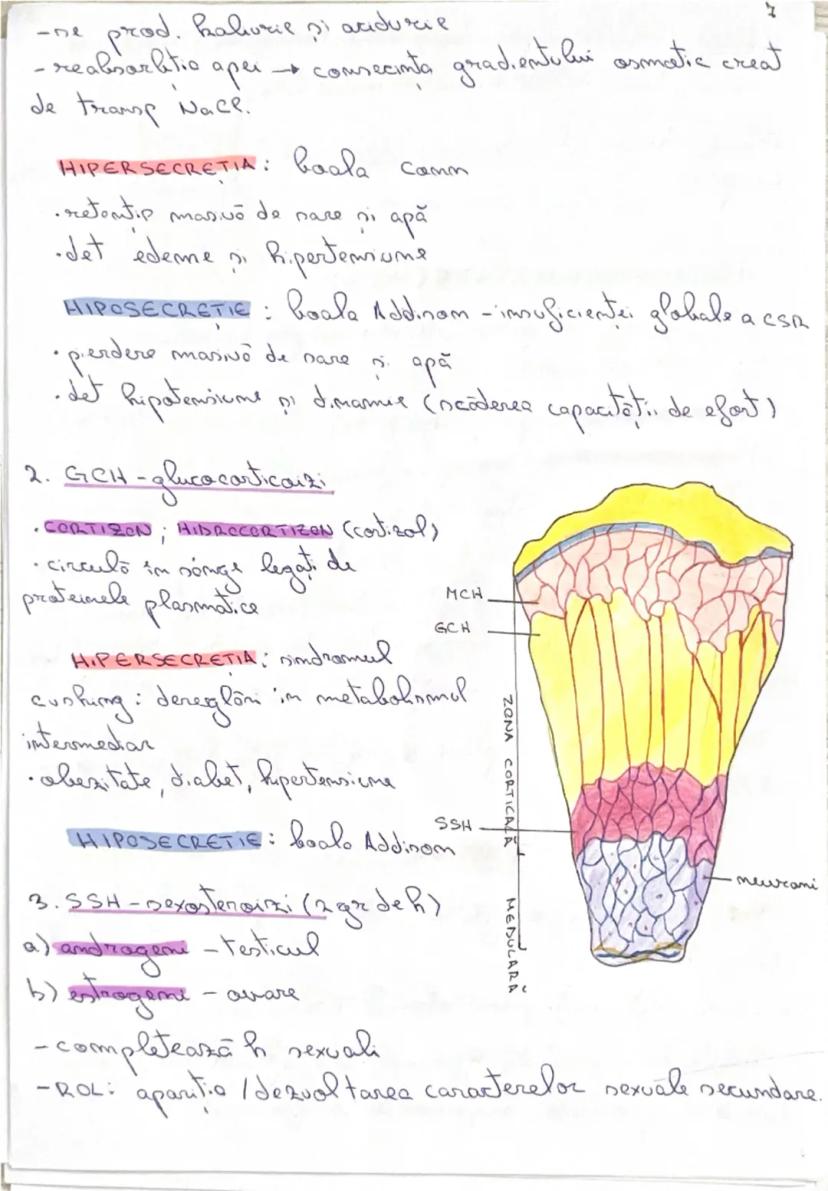 7
- se prod. kaliurie și acidurie
- reabsorbția apei → consecința gradientului osmotic creat
de transp NaCl.
HIPERSECREȚIA: boala Conn
• retenție masivă de sare și apă
• det edeme și hipertensiune
HIPOSECREȚIE: boala Addison - insuficienței globale a CSR
• pierdere masivă de sare și apă
• det hipotensiune și dinamie (scăderea capacității de efort)
2. GCH - glucocorticoizi
• CORTIZON; HIDROCORTIZON (cortizol)
• circulă în sânge legați de
proteinele plasmatice
HIPERSECREȚIA: sindromul
cushing: dereglări în metabolismul
intermediar
• obezitate, diabet, hipertensiune
HIPOSECREȚIE: boala Addison
3. SSH - sexosteroizi (2 gr de h)
a) androgeni - testicul
b) estrogeni - ovare
- completează h sexuali
- ROL: apariția / dezvoltarea caracterelor sexuale secundare.
MCH
GCH
ZONA CORTICALĂ
SSH
neuroni
MEDULARĂ